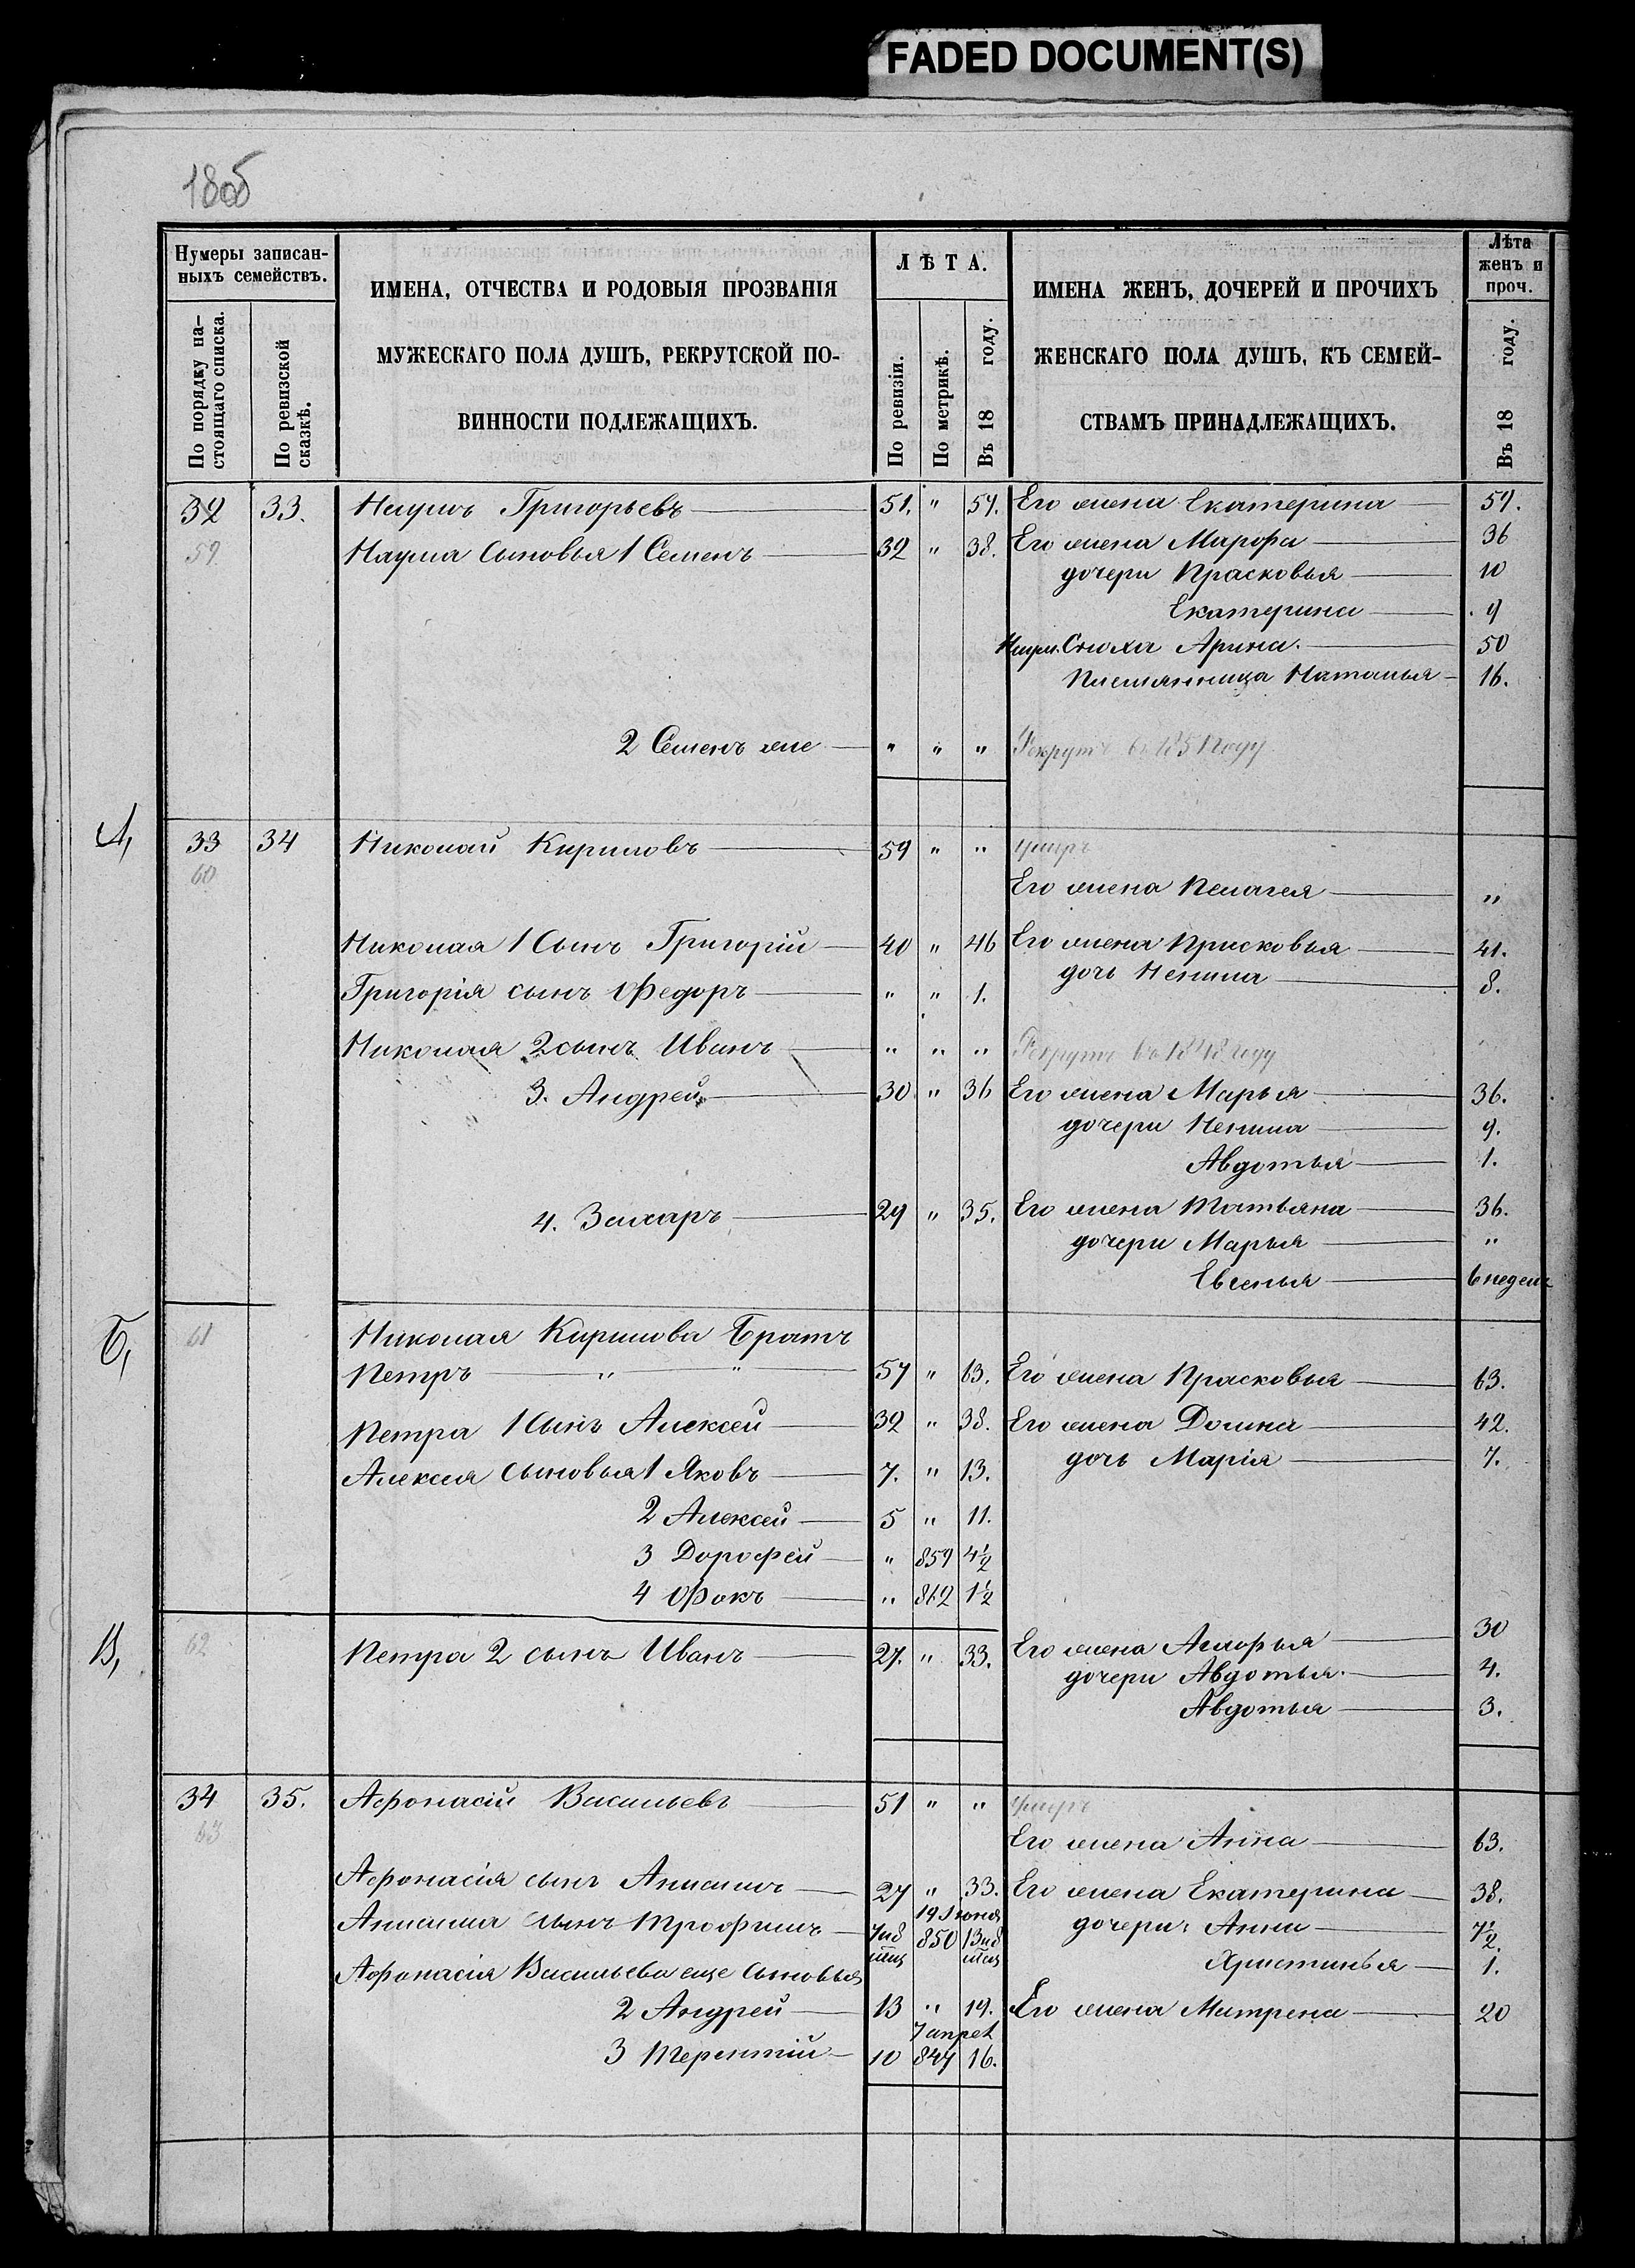 FADED DOCUMENT(S)
Нумеры записан-
ныхъ семействъ.
По порядку на-
стоящаго списка.
По ревизской
сказкѣ.
ИМЕНА, ОТЧЕСТВА И РОДОВЫЯ ПРОЗВАНІЯ
МУЖЕСКАГО ПОЛА ДУШЪ, РЕКРУТСКОЙ ПО-
ВИННОСТИ ПОДЛЕЖАЩИХЪ.
ЛѢТА.
По ревизіи.
По метрикѣ.
Въ 18 году.
ИМЕНА ЖЕНЪ, ДОЧЕРЕЙ И ПРОЧИХЪ
ЖЕНСКАГО ПОЛА ДУШЪ, КЪ СЕМЕЙ-
СТВАМЪ ПРИНАДЛЕЖАЩИХЪ.
Лѣта
женъ и
проч.
Въ 18 году.
32 33. Наумъ Григорьевъ 51. " 57. Его жена Екатерина 57.
59 Наума сыновья 1 Семенъ 32 " 38. Его жена Марфа 36
дочери Прасковья 10
Екатерина 9
Наум. Сноха Арина. 50
Племянница Наталья 16.
2 Семенъ же " " " Рекрутъ въ 1851 году
А, 33 34 Николай Кириловъ 59 " " умеръ
60 Его жена Пелагея "
Николая 1 Сынъ Григорій 40 " 46 Его жена Прасковья 41.
дочь Ненила 8.
Григорія сынъ Федоръ " " 1.
Николая 2 сынъ Иванъ " " " Рекрутъ въ 1848 году
3. Андрей 30 " 36 Его жена Марья 36.
дочери Ненила 9.
Авдотья 1.
4. Захаръ 29 " 35. Его жена Татьяна 36.
дочери Марья "
Евгенья 6 недель
Б, 61 Николая Кирилова Братъ
Петръ " " 57 " 63. Его жена Прасковья 63.
Петра 1 Сынъ Алексей 32 " 38. Его жена Домна 42.
Алексея сыновья 1 Яковъ 7. " 13. дочь Марія 7.
2 Алексей 5 " 11.
3 Дорофей " 859 4½
4 Фокъ " 862 1½
В, 62 Петра 2 сынъ Иванъ 27. " 33. Его жена 30
дочери Авдотья. 4.
Авдотья 3.
34 35. Афонасій Васильевъ 51 " " умеръ
63 Его жена Анна 63.
Афонасія сынъ 27 " 33. Его жена Екатерина 38.
19 Июня
сынъ Трофимъ 7 и 8 мѣс 850 13 и 8 мѣс дочери: Анна 7½.
Христинья 1.
Афонасія Васильева еще сыновья
2 Андрей 13 " 19. Его жена Матрена 20
7 апрел
3 Терентій 10 847 16.